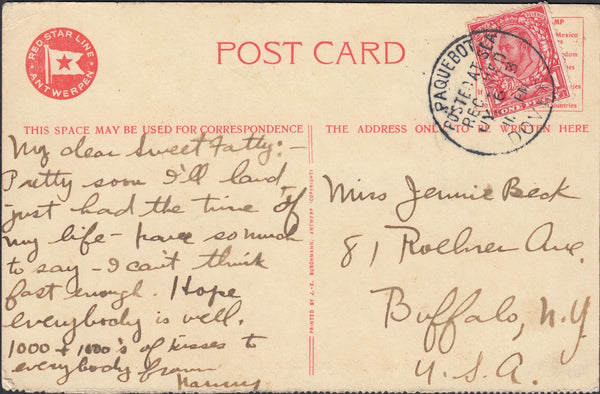 RED STAR LINE
ANTWERPEN
POST CARD
PAQUEBOT
POSTED AT SEA
DOVER
ONE PENNY
THIS SPACE MAY BE USED FOR CORRESPONDENCE
THE ADDRESS ONLY TO BE WRITTEN HERE
My dear Sweet Fatty:-
Pretty soon I'll land
just had the time of
my life - have so much
to say - I can't think
fast enough. Hope
everybody is well.
1000 + 1000's of kisses to
everybody from
PRINTED BY J.-E. BUSCHMANN, ANTWERP (COPYRIGHT)
Miss Jennie Beck
81 Roehrer Ave.
Buffalo, N.Y.
U.S.A.